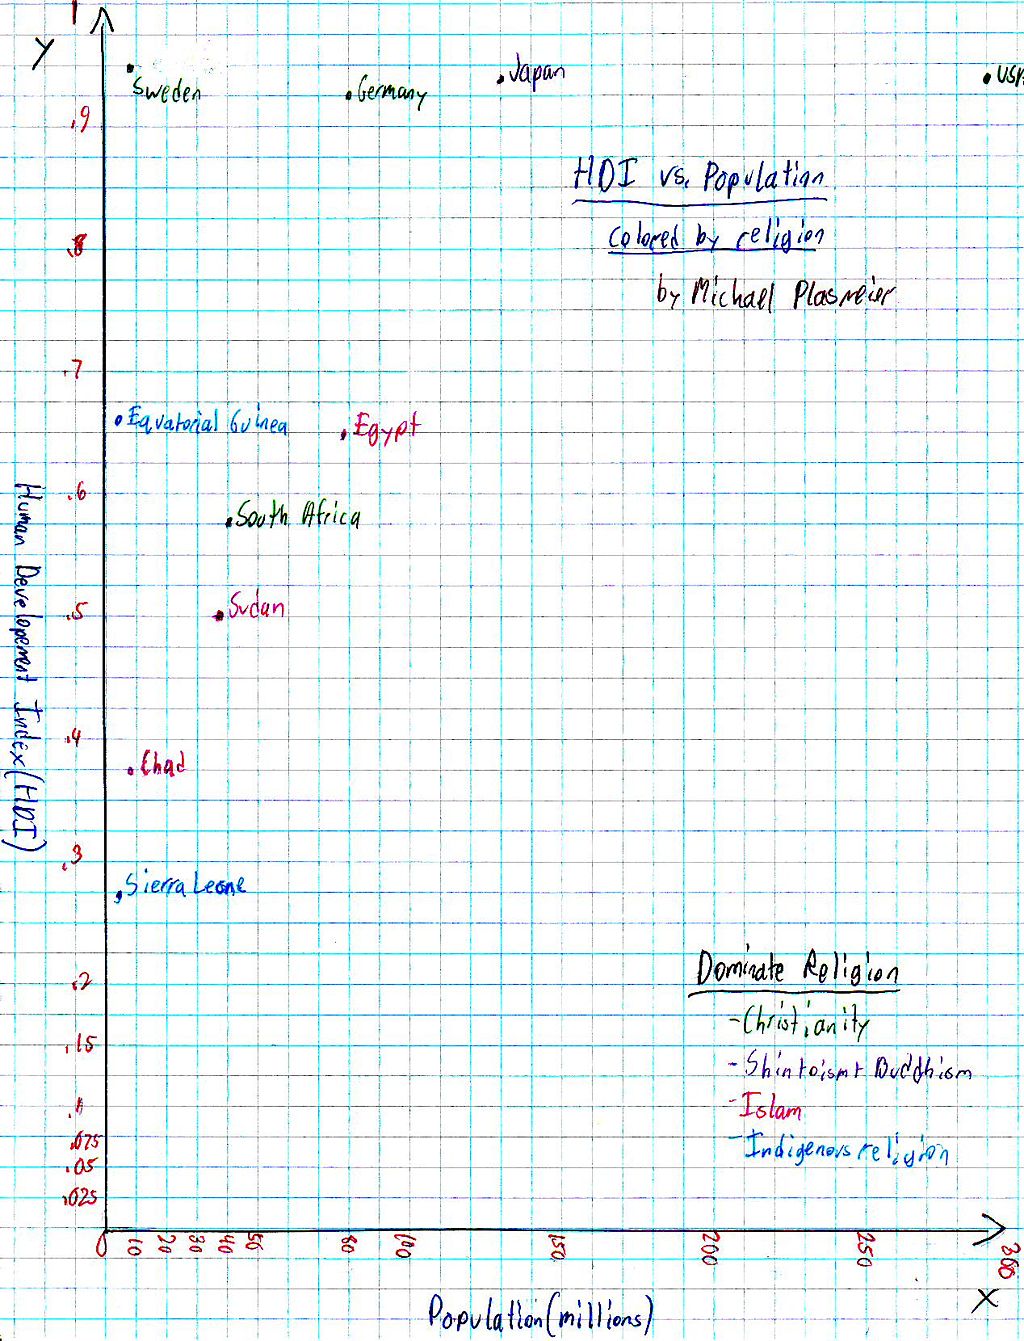 1
y
Sweden
Germany
Japan
USA
.9
HDI vs. Population
colored by religion
.8
by Michael Plasmeier
.7
Equatorial Guinea
Egypt
.6
South Africa
Sudan
.5
Human Developement Index (HDI)
.4
Chad
.3
Sierra Leone
.2
Dominate Religion
-Christianity
.15
-Shintoism+ Buddhism
.1
-Islam
.075
-Indigenous religion
.05
.025
0 10 20 30 40 50 80 100 150 200 250 300
x
Population (millions)